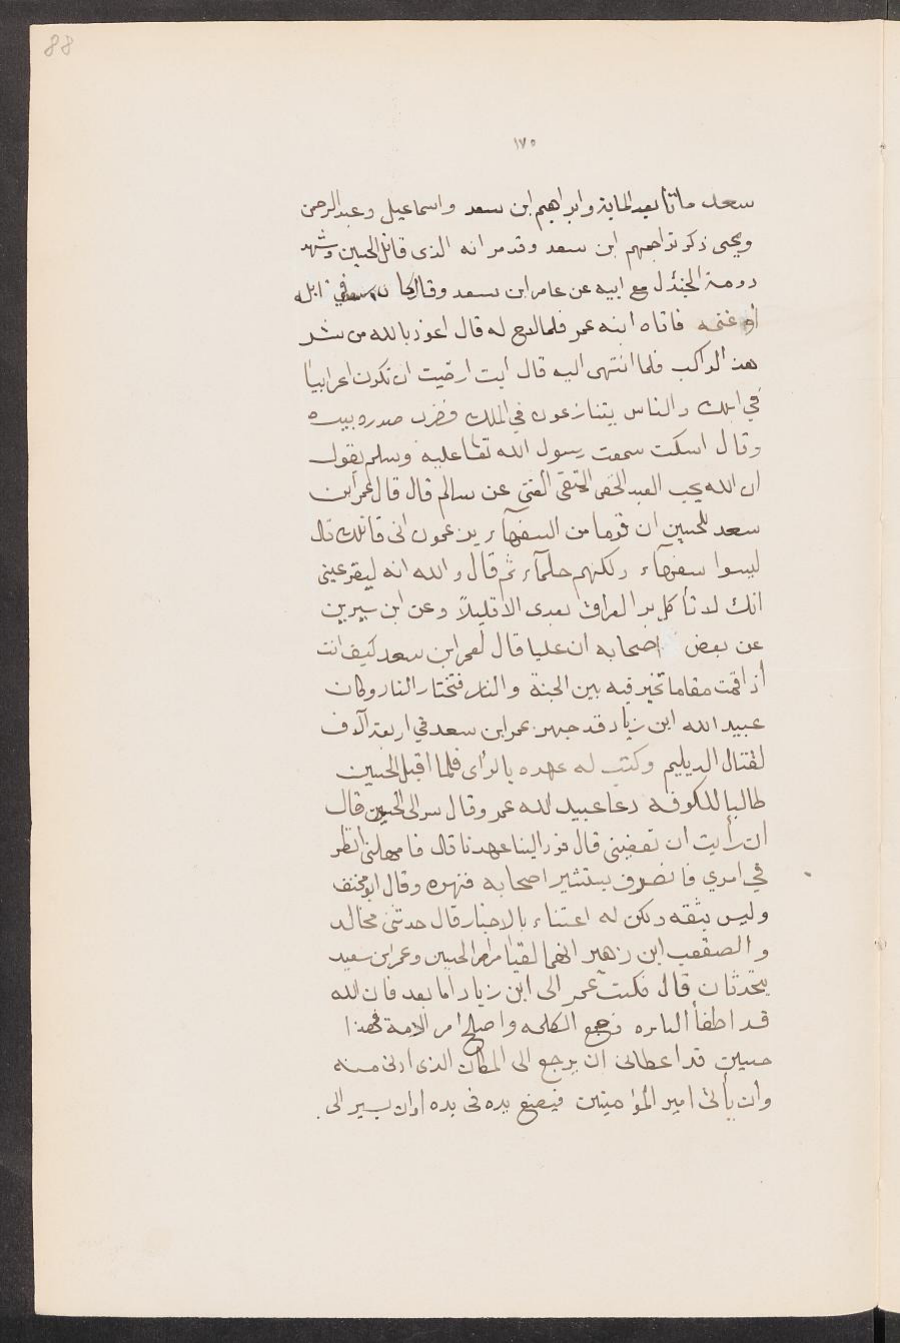 88
١٧٥
سعد ماتا بعد الماية وابراهيم ابن سعد واسماعيل وعبد الرحمن
ويحيى ذكر تراجمهم ابن سعد وقد مر انه الذى قاتل الحسين وشهد
دومة الجندل مع ابيه عن عامر ابن سعد وقال كان سعد في ابل
أو غنمه فاتاه ابنه عمر فلما لاح له قال اعوذ بالله من شر
هذا الراكب فلما انتهى اليه قال ابت ارضيت ان تكون اعرابيا
في ابلك والناس يتنازعون في الملك فضرب صدره بيده
وقال اسكت سمعت رسول الله تعا عليه وسلم يقول
ان الله يحب العبد الخفى التقى الغنى عن سالم قال قال عمر ابن
سعد للحسين ان قوما من السفهآء يزعمون انى قاتلك قال
ليسوا سفهآء ولكنهم حلمآء ثم قال والله انه ليقر عينى
انك لا تأكل بر العراق بعدى الا قليلاً وعن ابن سيرين
عن بعض اصحابه ان عليا قال لعمر ابن سعد كيف انت
أذا قمت مقاما تخير فيه بين الجنة والنار فتختار النار وكان
عبيد الله ابن زياد قد جهز عمر ابن سعد في اربعة آلاف
لقتال الديليم وكتب له عهده بالرأى فلما اقبل الحسين
طالبا للكوفة دعا عبيد لله عمر وقال سر الى الحسين قال
ان رأيت ان تعفينى قال فرد الينا عهدنا قال فامهلنى انظر
في امري فانصرف يستشير اصحابه فنهوه وقال ابو مخنف
وليس بثقه ولكن له اعتناء بالاخبار قال حدثنى مجالد
والصقعب ابن زهير انهما لقيا مرارا الحسين وعمر ابن سعيد
يتحدثان قال فكتب عمر الى ابن زياد اما بعد فان الله
قد اطفأ النايره وجمع الكلمه واصلح امر الامة فهذا
حسين قد اعطانى ان يرجع الى المكان الذى اتى منه
وان يأتى امير المؤمنين فيضع يده فى يده او ان يسير الى